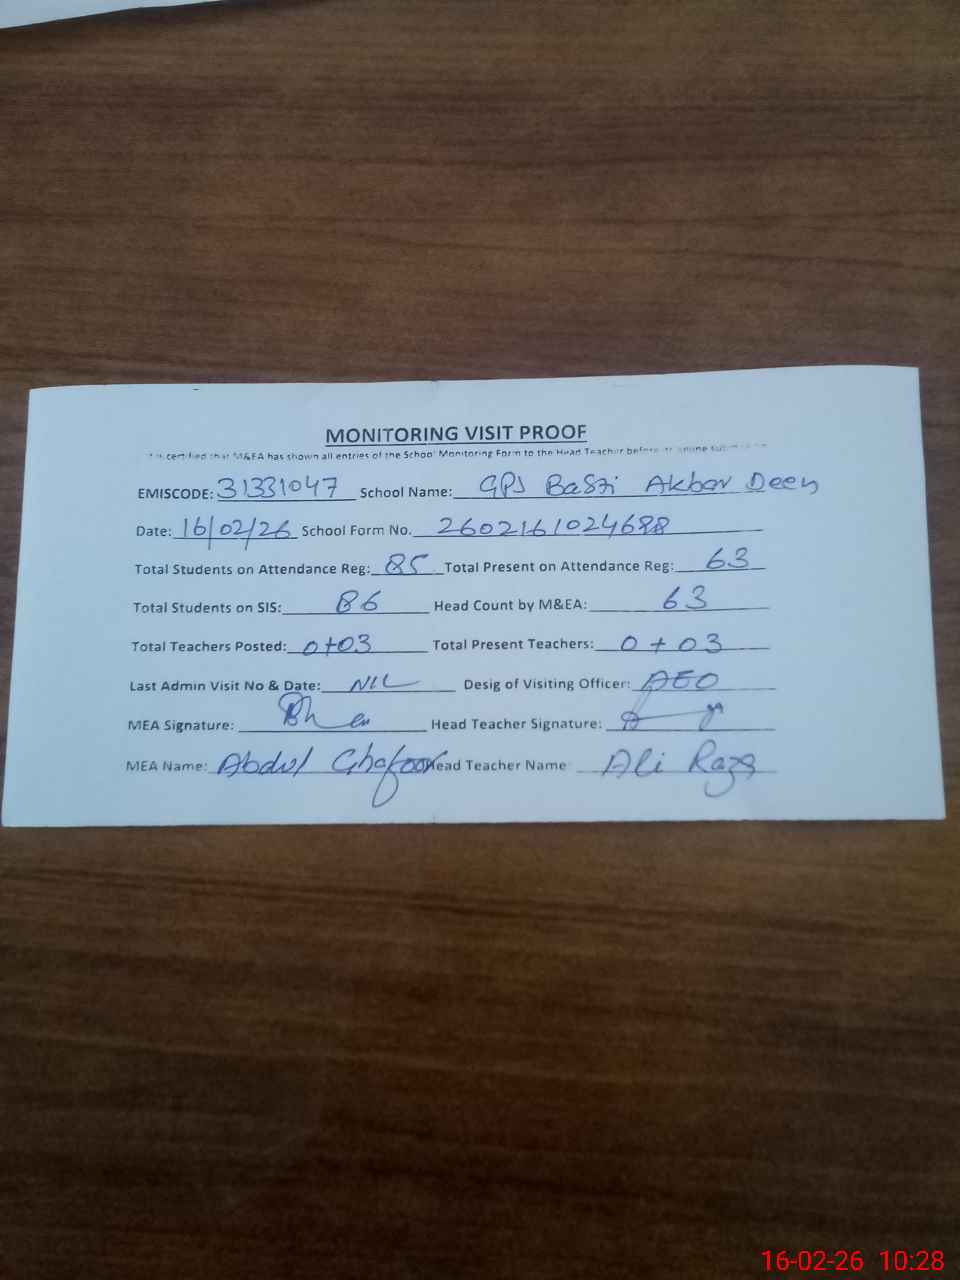 MONITORING VISIT PROOF
It is certified that M&EA has shown all entries of the School Monitoring Form to the Head Teacher before online
EMISCODE: 31331047 School Name: GPS Basti Akbar Deen
Date: 16/02/26 School Form No. 2602161024688
Total Students on Attendance Reg: 85 Total Present on Attendance Reg: 63
Total Students on SIS: 86 Head Count by M&EA: 63
Total Teachers Posted: 0+03 Total Present Teachers: 0+03
Last Admin Visit No & Date: NIL Desig of Visiting Officer: AEO
MEA Signature: Head Teacher Signature:
MEA Name: Abdul Ghafoor Head Teacher Name Ali Raza
16-02-26 10:28